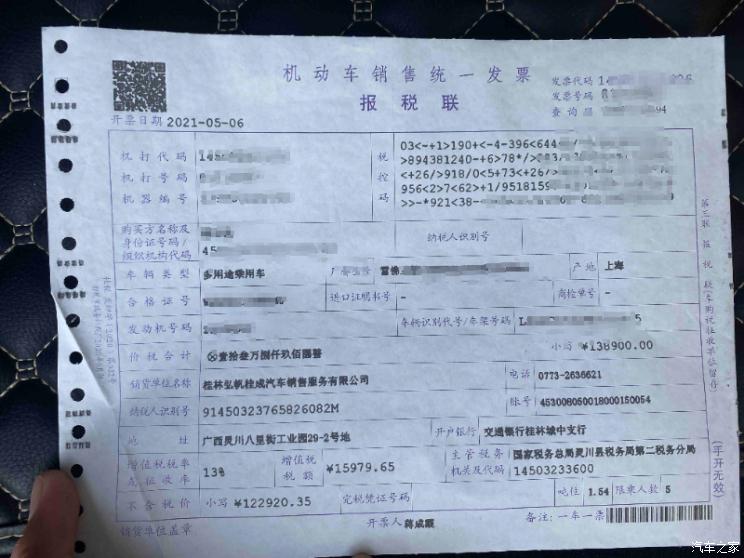 机动车销售统一发票
报税联
发票代码
发票号码
开票日期 2021-05-06
机打代码
机打号码
机器编号
税控码
03<-+1>190+<-4-396<644
>894381240-+6>78*/>
<+26/>918/0<5+73<+26/>
956<2>7<62>+1/9518159
>>-*921<38-
购买方名称及
身份证号码/
组织机构代码
纳税人识别号
车辆类型 多用途乘用车 产地 上海
合格证号 进口证明书号 - 商检单号 -
发动机号码 车辆识别代号/车架号码
价税合计 ⊗壹拾叁万捌仟玖佰圆整 小写 ¥138900.00
销货单位名称 桂林弘帆桂成汽车销售服务有限公司 电话 0773-2636621
纳税人识别号 91450323765826082M 账号 453008050018000150054
地址 广西灵川八里街工业园29-2号地 开户银行 交通银行桂林城中支行
增值税税率
或征收率 13% 增值税
税额 ¥15979.65 主管税务
机关及代码 国家税务总局灵川县税务局第二税务分局
14503233600
不含税价 小写 ¥122920.35 完税凭证号码 吨位 1.54 限乘人数 5
销货单位盖章 开票人 备注:一车一票
第三联 报税联(车购税征收单位留存)
(手开无效)
汽车之家